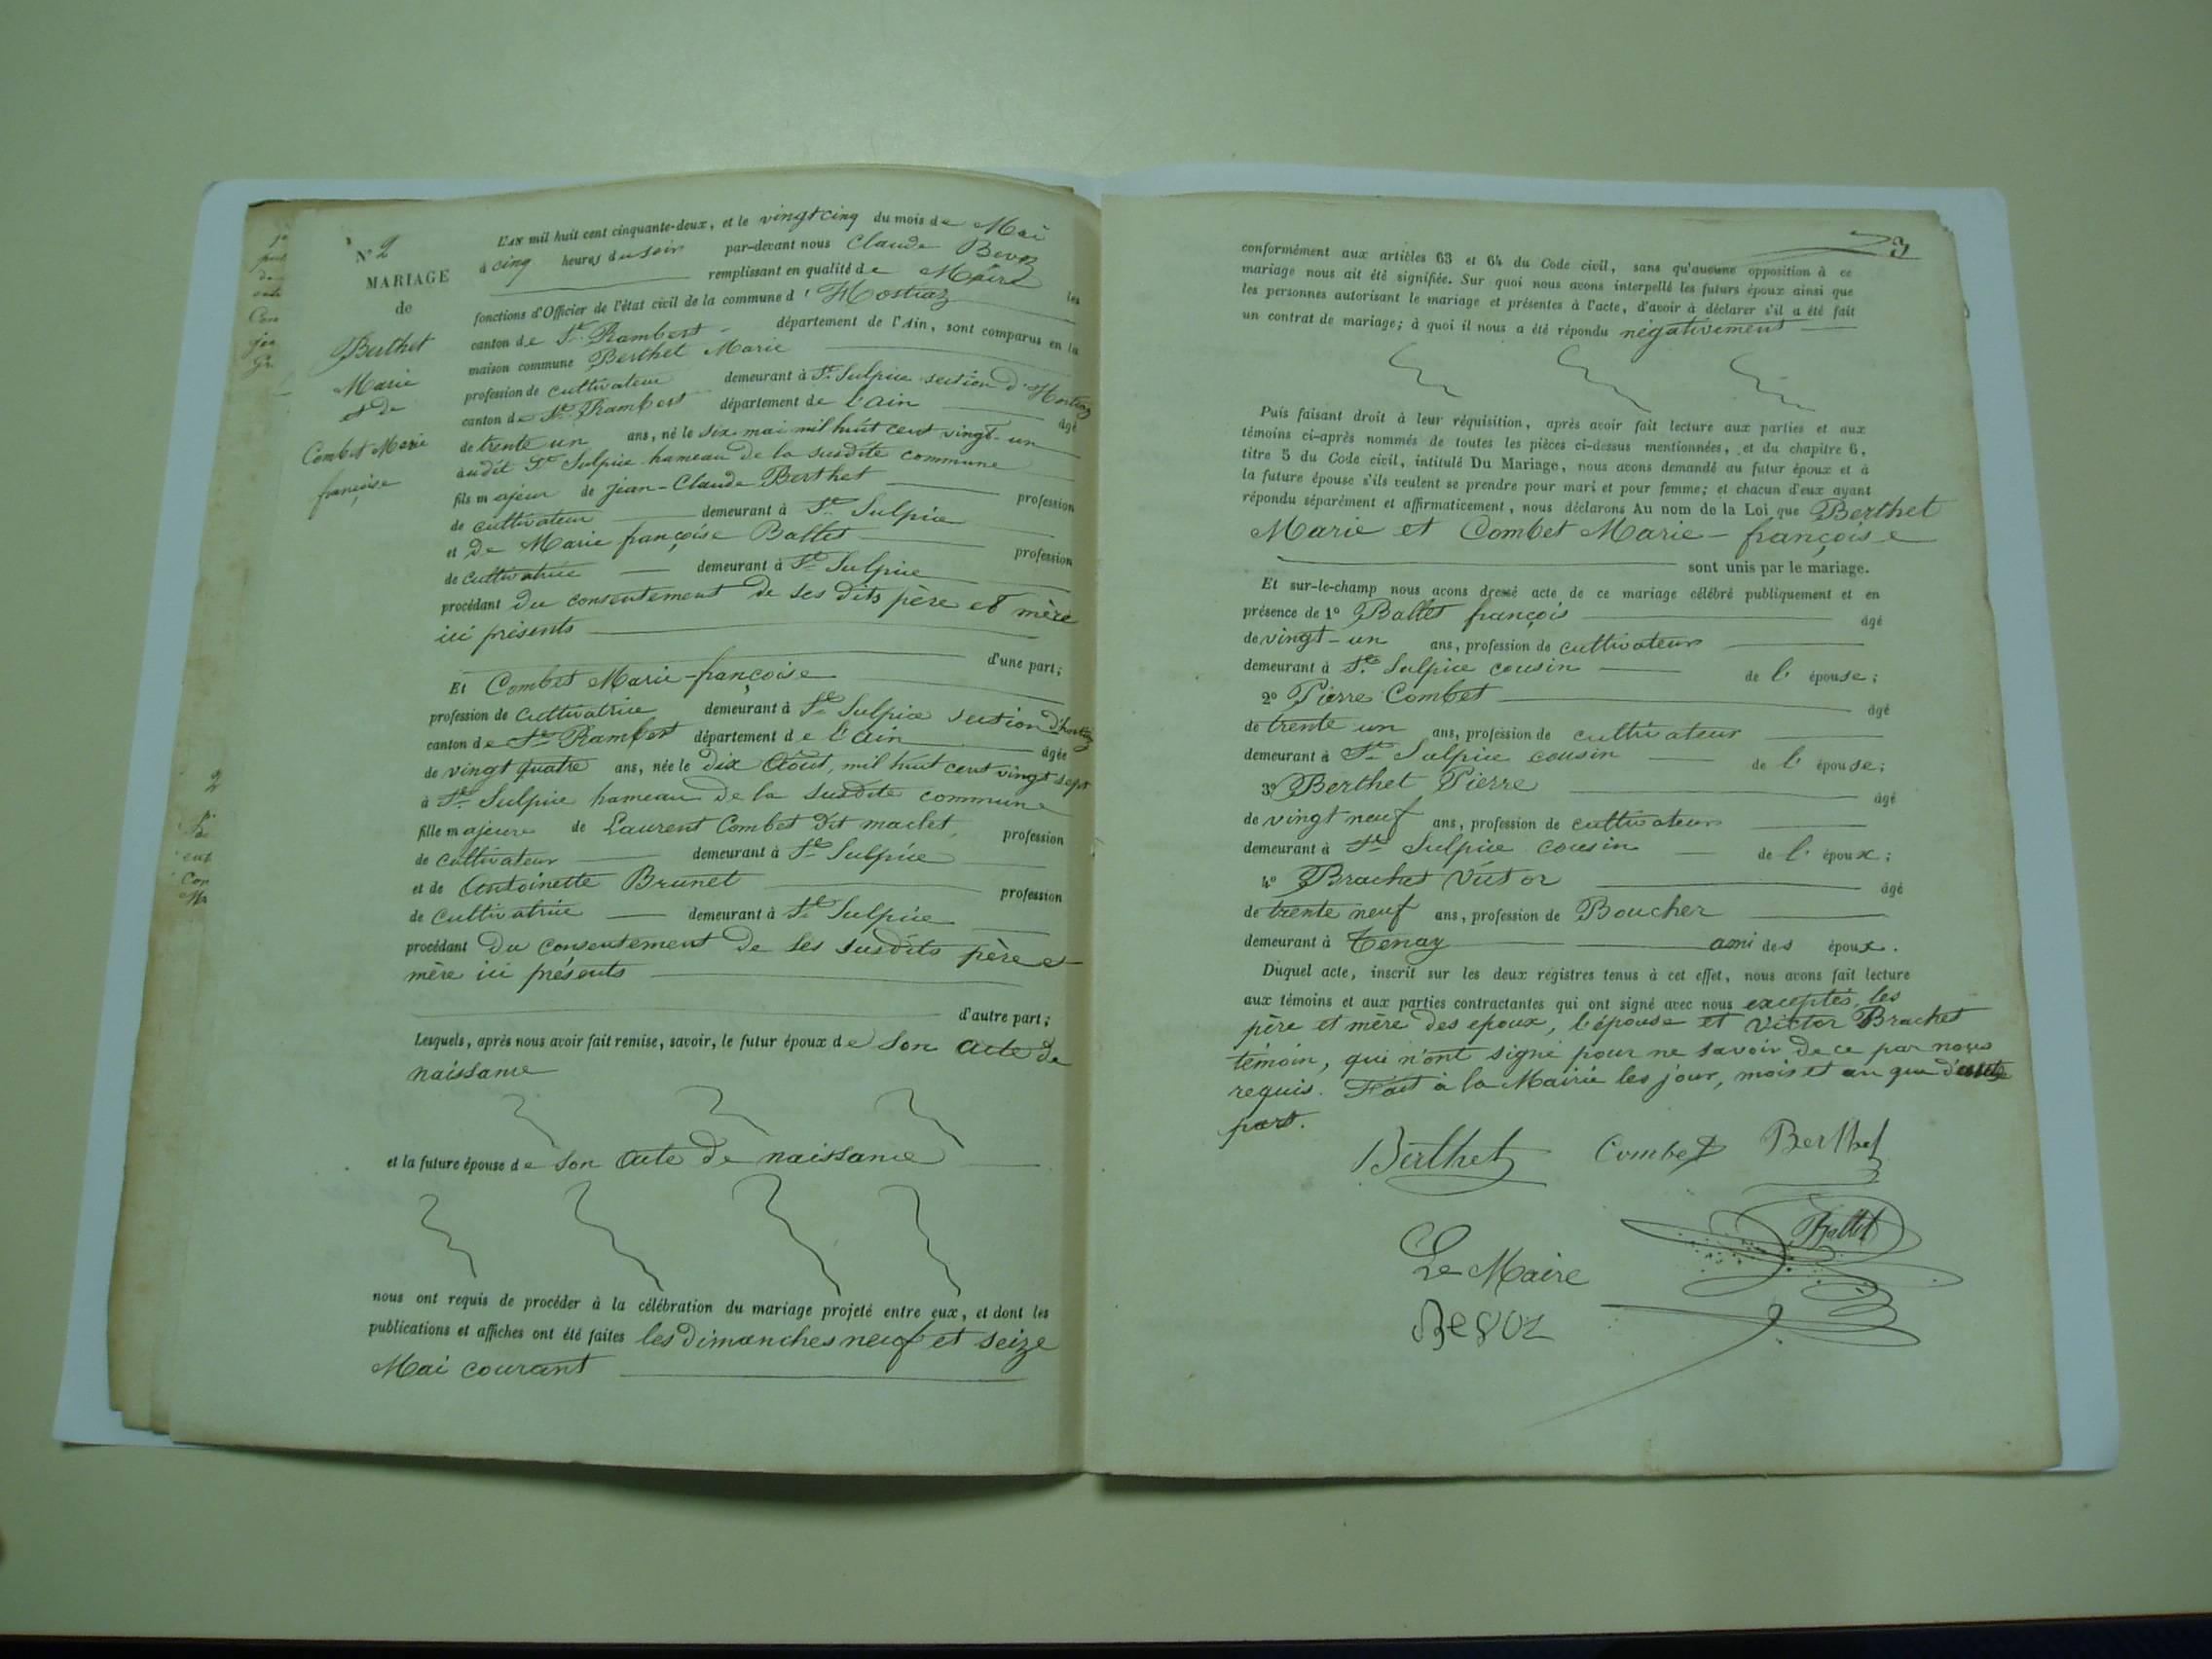 N° 2
MARIAGE
de
Berthet
Marie
et de
Combet Marie
françoise
L'AN mil huit cent cinquante-deux, et le vingt cinq du mois de Mai
à cinq heures du soir par-devant nous Claude
remplissant en qualité de Maire les
fonctions d'Officier de l'état civil de la commune d'Hostiaz
canton de St. Rambert département de l'Ain, sont comparus en la
maison commune Berthet Marie
profession de cultivateur demeurant à St. Sulpice section d'Hostiaz
canton de St. Rambert département de l'ain âgé
de trente un ans, né le six mai mil huit cent vingt-un
audit St. Sulpice hameau de la susdite commune
fils majeur de jean-Claude Berthet profession
de cultivateur demeurant à St. Sulpice
et de Marie françoise Ballet profession
de cultivatrice demeurant à St. Sulpice
procédant du consentement de ses dits père et mère
ici présents
d'une part;
Et Combet Marie-françoise
profession de cultivatrice demeurant à St. Sulpice section d'hostiaz
canton de St. Rambert département de l'ain âgée
de vingt quatre ans, née le dix Août, mil huit cent vingt sept
à St. Sulpice hameau de la susdite commune
fille majeure de Laurent Combet dit maclet, profession
de cultivateur demeurant à St. Sulpice
et de Antoinette Brunet profession
de cultivatrice demeurant à St. Sulpice
procédant du consentement de ses susdits père et
mère ici présents
d'autre part;
Lesquels, après nous avoir fait remise, savoir, le futur époux de son acte de
naissance
et la future épouse de son acte de naissance
nous ont requis de procéder à la célébration du mariage projeté entre eux, et dont les
publications et affiches ont été faites les dimanches neuf et seize
Mai courant
3
conformément aux articles 63 et 64 du Code civil, sans qu'aucune opposition à ce
mariage nous ait été signifiée. Sur quoi nous avons interpellé les futurs époux ainsi que
les personnes autorisant le mariage et présentes à l'acte, d'avoir à déclarer s'il a été fait
un contrat de mariage; à quoi il nous a été répondu négativement
Puis faisant droit à leur réquisition, après avoir fait lecture aux parties et aux
témoins ci-après nommés de toutes les pièces ci-dessus mentionnées, et du chapitre 6,
titre 5 du Code civil, intitulé Du Mariage, nous avons demandé au futur époux et à
la future épouse s'ils veulent se prendre pour mari et pour femme; et chacun d'eux ayant
répondu séparément et affirmativement, nous déclarons Au nom de la Loi que Berthet
Marie et Combet Marie-françoise
sont unis par le mariage.
Et sur-le-champ nous avons dressé acte de ce mariage célébré publiquement et en
présence de 1° Ballet françois âgé
de vingt-un ans, profession de cultivateur
demeurant à St. Sulpice cousin de l'épouse;
2° Pierre Combet âgé
de trente un ans, profession de cultivateur
demeurant à St. Sulpice cousin de l'épouse;
3° Berthet Pierre âgé
de vingt neuf ans, profession de cultivateur
demeurant à St. Sulpice cousin de l'époux;
4° Brachet Victor âgé
de trente neuf ans, profession de Boucher
demeurant à Tenay ami des époux.
Duquel acte, inscrit sur les deux registres tenus à cet effet, nous avons fait lecture
aux témoins et aux parties contractantes qui ont signé avec nous exceptés les
père et mère des époux, l'épouse et Victor Brachet
témoin, qui n'ont signé pour ne savoir de ce par nous
requis. Fait à la Mairie les jour, mois et an que d'autre
part.
Berthet Combet Berthet
Ballet
Le Maire